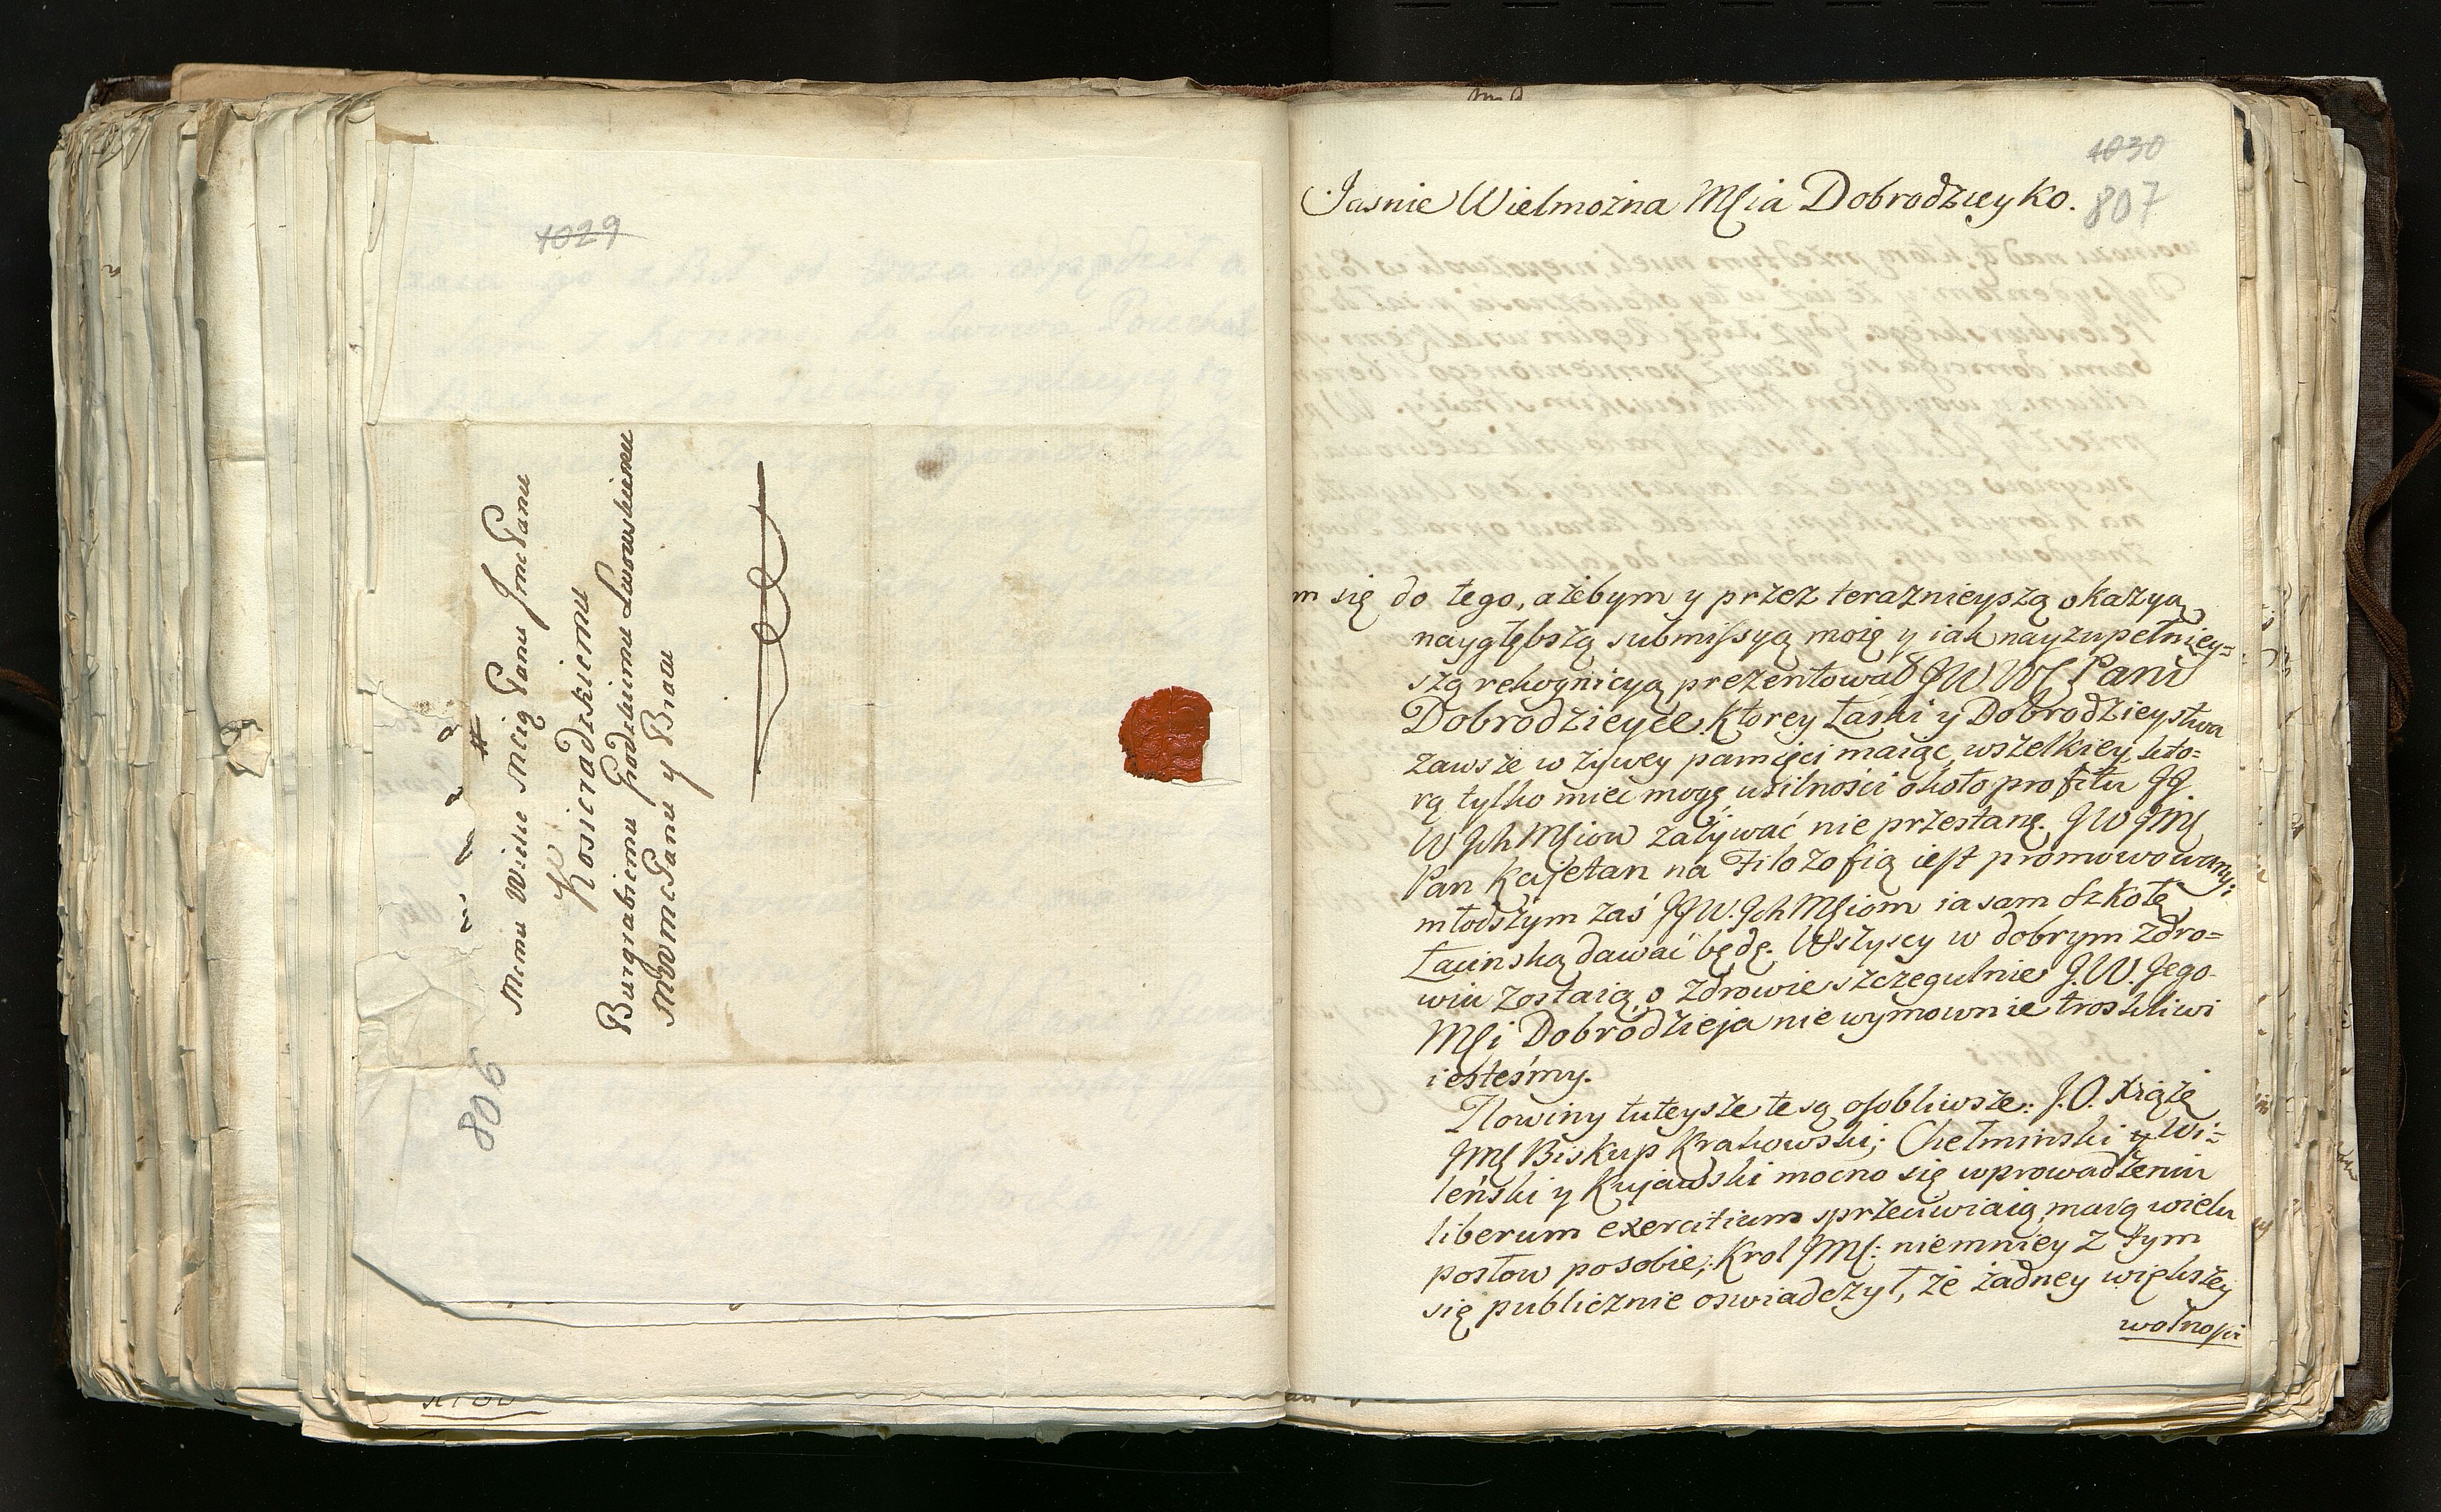 1029
Memu Wielce Mścią Panu JmcPanu
Kosieradzkiemu
Burgrabiemu Grodzkiemu Lwowskiemu
MWMcPanu y Bratu
806
1030
807
Jasnie Wielmożna Mſia Dobrodzieyko.
m się do tego, ażebym y przez teraznieyszą okazyą
naygłębszą submiſsyą moię y iak nayzupełniey=
szą rekognicyą prezentował JW WMſ Pani
Dobrodzieyce. Ktorey Łaski y Dobrodzieystwa
zawsze w żywey pamięci maiąc, wszelkiey, kto=
rą tylko mieć mogę usilności około profitu JJ
W Jch Mſiow zażywać nie przestanę. JW JMſ
Pan Kajetan na Filozofią ieſt promowowany:
młodszym zaś JJW. Jch Mſiom ia sam Szkołę
Łacinską dawać będę. Wszyscy w dobrym zdro=
wiu zostaią, o zdrowie szczegulnie J.W. Jego
Mſi Dobrodzieja nie wymownie troskliwi
iesteśmy.
Nowiny tuteysze te są oſobliwsze: J.O. Xiąże
JMſ Biskup Krakowski; Chełminski y Wi=
leński y Kujawski mocno się wprowadzeniu
liberum exercitium sprzeciwiaią, maią wielu
posłow po sobie; Krol JMſ: niemniey z tym
się publicznie oswiadczył, że żadney większey
wolnoſci